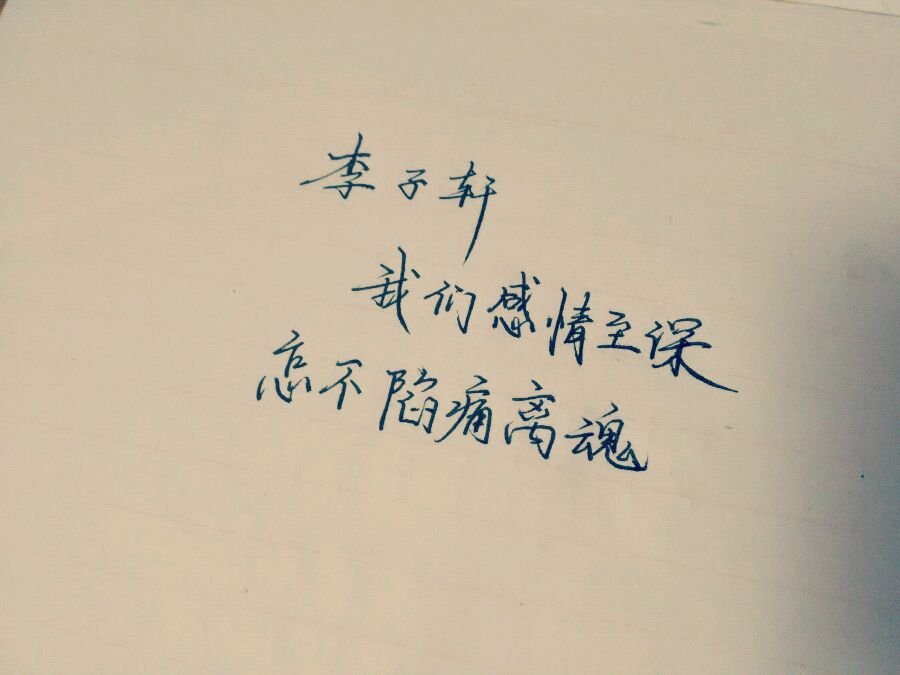 李子轩
我们感情至深
忘不陷痛离魂